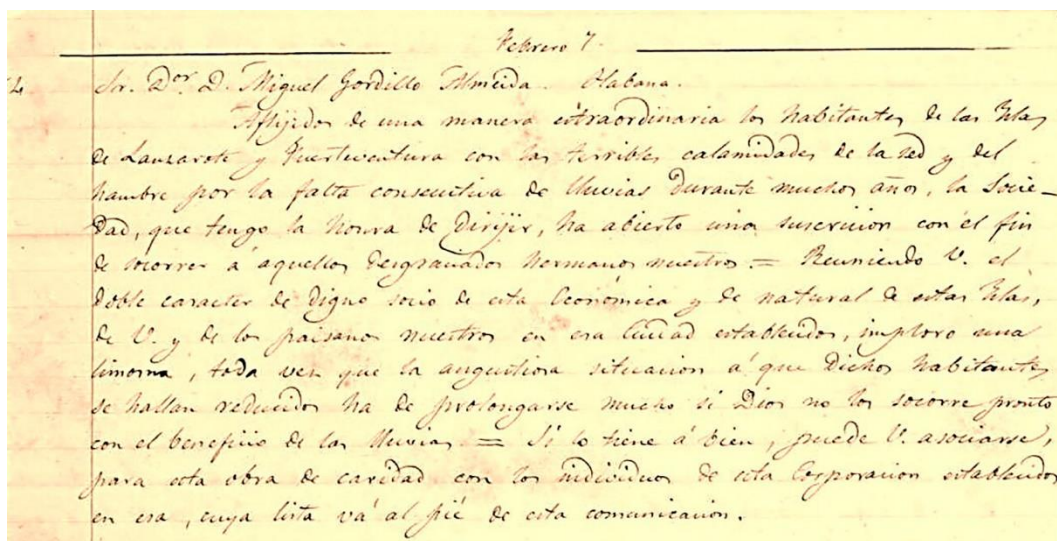 Febrero 7.
Sr. Dor. D. Miguel Gordillo Almeida. Habana.
Aflijidos de una manera extraordinaria los habitantes de las Islas
de Lanzarote y Fuerteventura con las terribles calamidades de la sed y del
hambre por la falta consecutiva de lluvias durante muchos años, la Socie-
dad, que tengo la honra de dirijir, ha abierto una suscricion con el fin
de socorrer á aquellos desgraciados hermanos nuestros. = Reuniendo V. el
doble caracter de digno socio de esta Económica y de natural de estas Islas,
de V. y de los paisanos nuestros en esa Ciudad establecidos, imploro una
limosna, toda vez que la angustiosa situacion á que dichos habitantes
se hallan reducidos ha de prolongarse mucho si Dios no los socorre pronto
con el beneficio de las lluvias = Si lo tiene á bien, puede V. asociarse,
para esta obra de caridad con los individuos de esta Corporacion establecidos
en esa, cuya lista vá al pié de esta comunicacion.